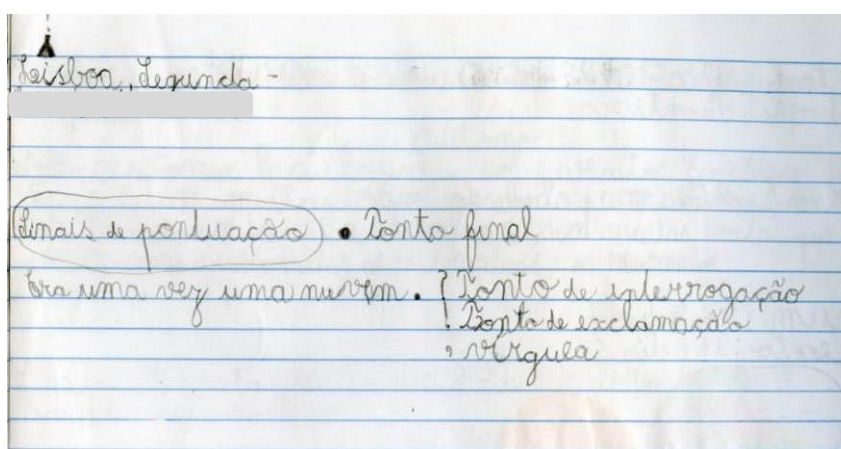 Leisboa, Segunda-
Sinais de pontuação • Ponto final
Era uma vez uma nuvem. ? Ponto de interrogação
! Ponto de exclamação
, vírgula